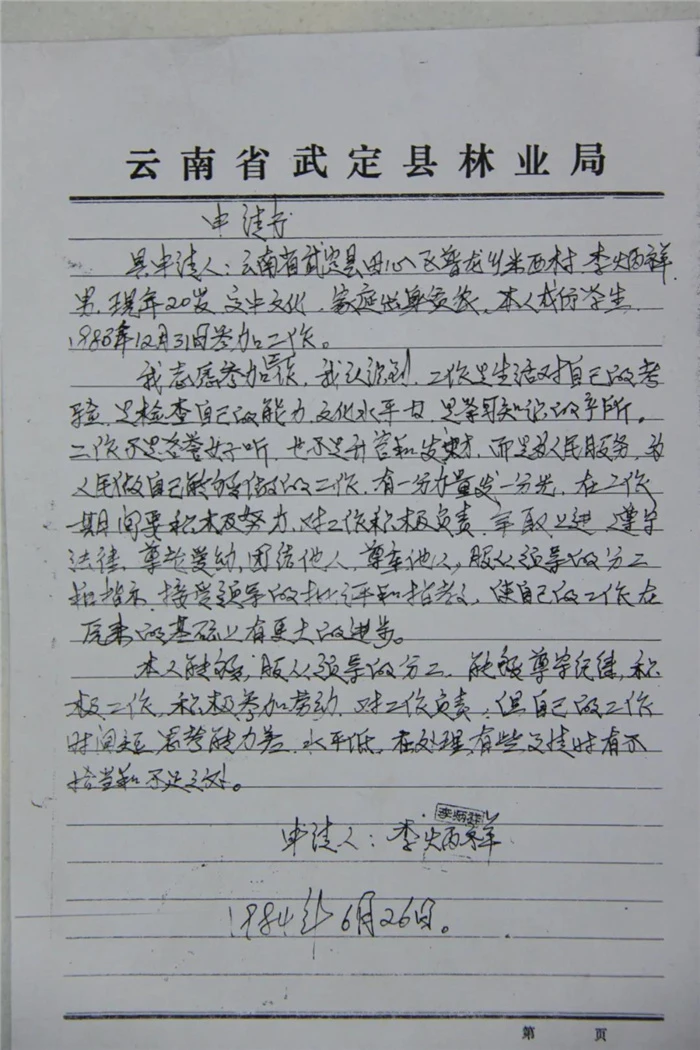 云南省武定县林业局
申请书
具申请人：云南省武定县田心区普龙乡米西村 李炳祥
男，现年20岁，文中文化，家庭出身贫农，本人成份学生，
1983年12月31日参加工作。
我志愿参加工作，我认识到，工作是生活对自己的考
验，是检查自己的能力，文化水平，是学习知识的场所。
工作不是名誉好听，也不是升官和发财，而是为人民服务，为
人民做自己能够做的工作，有一分力量发一分光，在工作
期间要积极努力，对工作积极负责，争取上进，遵守
法律，尊老爱幼，团结他人，尊重他人，服从领导的分工
和指示，接受领导的批评和指教，使自己的工作在
原来的基础上有更大的进步。
本人能够，服从领导的分工，能够尊守纪律，积
极工作，积极参加劳动，对工作负责，但自己的工作
时间短，思考能力差，水平低，在处理有些文捷时有不
恰当和不足之处。
申请人：李炳祥
李炳祥
1984年6月26日。
第 页